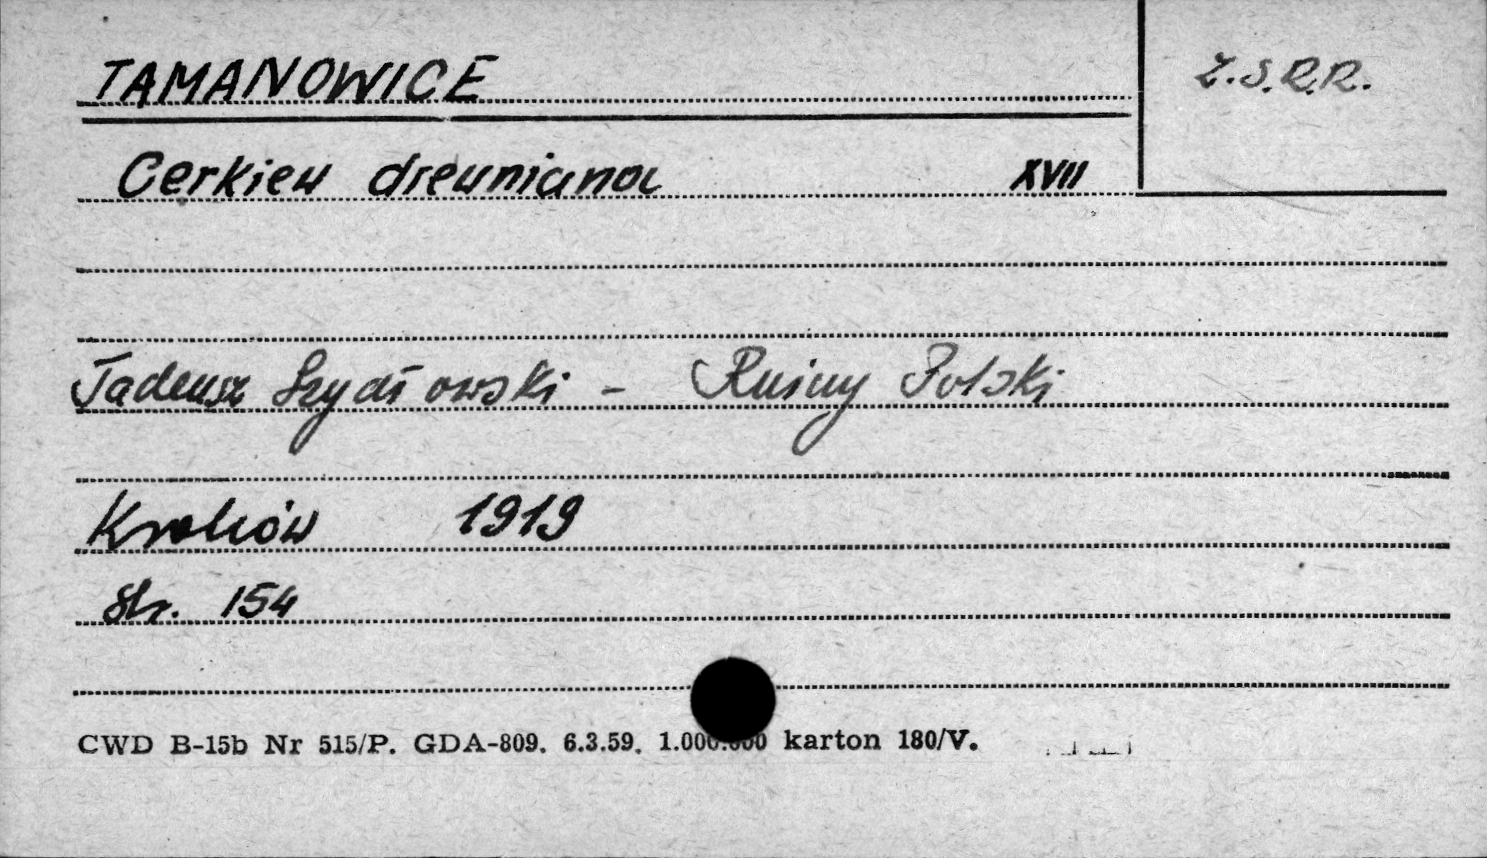 TAMANOWICE
Z.S.R.R.
Cerkiew drewniana XVII
Tadeusz Szydłowski - Ruiny Polski
Kraków 1919
Str. 154
CWD B-15b Nr 515/P. GDA-809. 6.3.59. 1.000.000 karton 180/V.